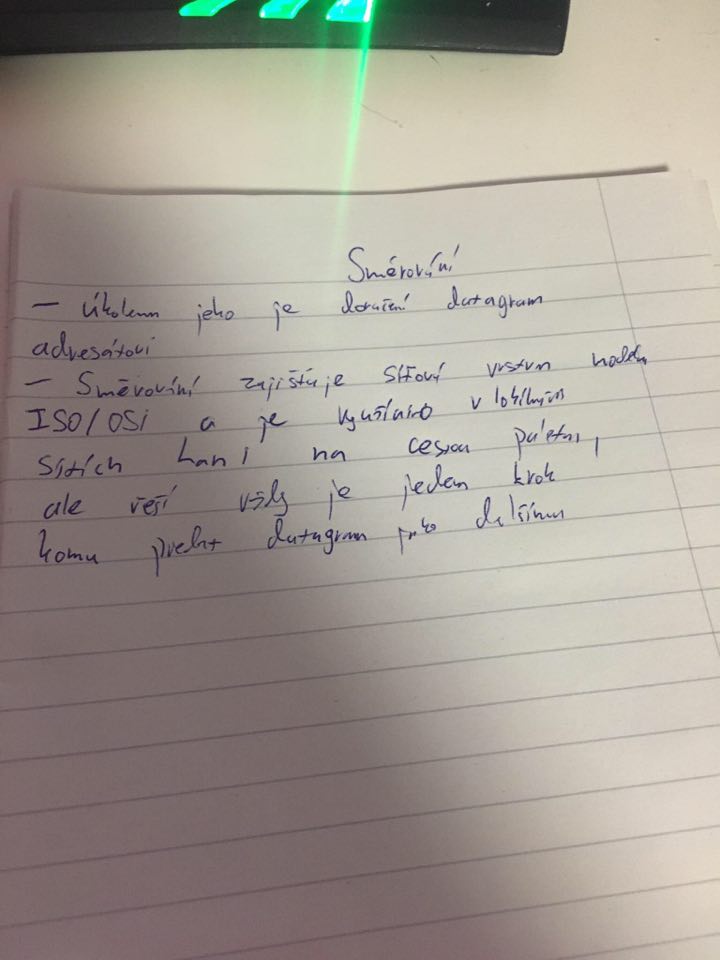 Směrování
— Úkolem jeho je doručení datagram
adresátovi
— Směrování zajišťuje síťová vrstva modelu
ISO/OSI a je využíváno v lokálních
sítích Lan i na
ale řeší vždy je jeden krok
komu předat datagram jako dalšímu